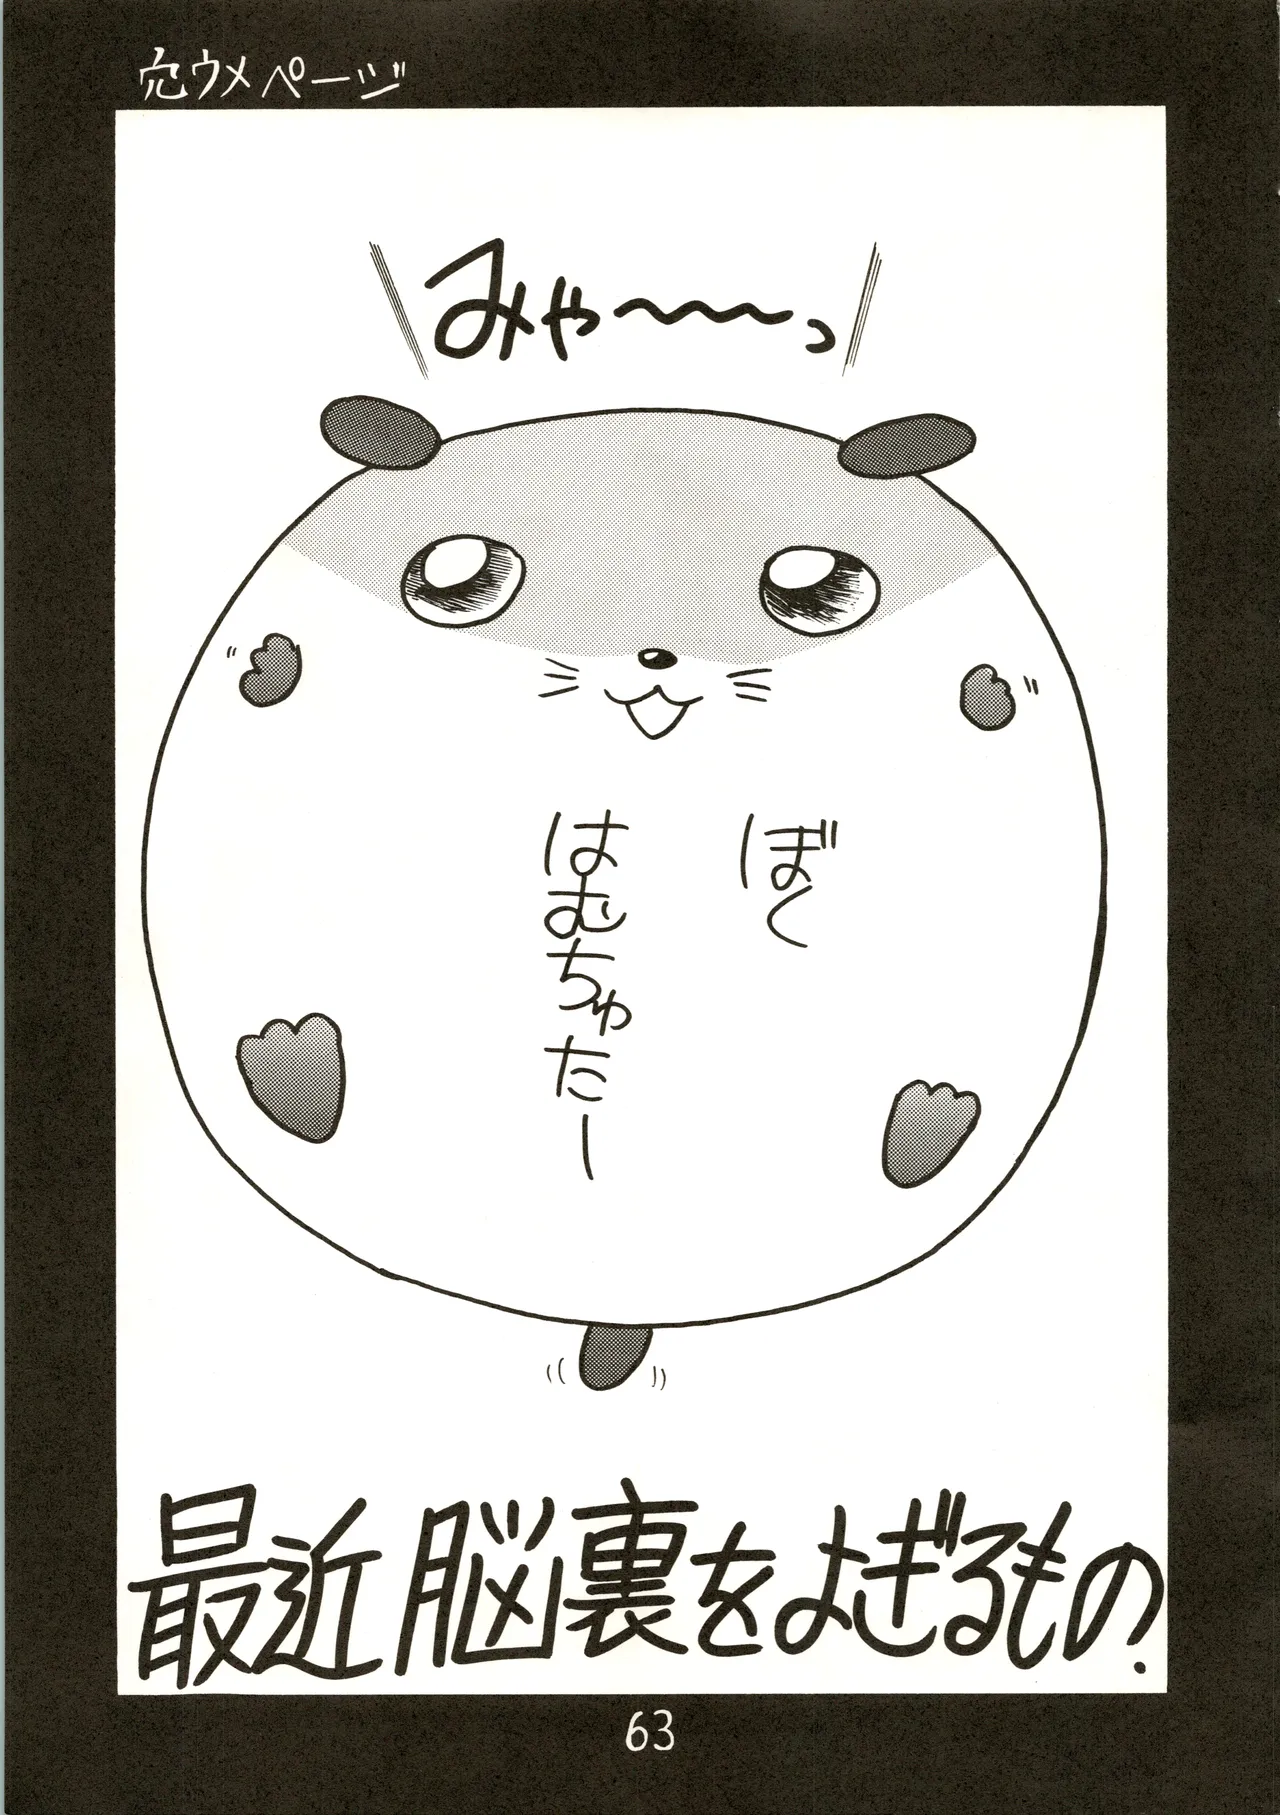 穴ウメページ
みゃ〜〜っ
ぼく
はむちゅたー
最近脳裏をよぎるもの.
63